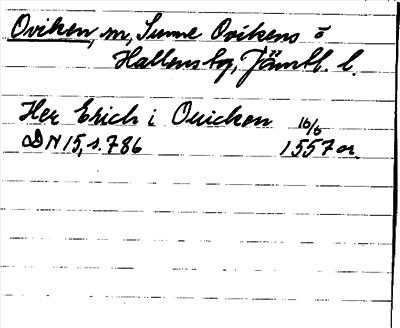 Oviken, m, Sunne Ovikens o
Hallens tg, Jämtl. l.
Her Erich i Ouicken 16/6
DN 15, s. 786 1557 or.